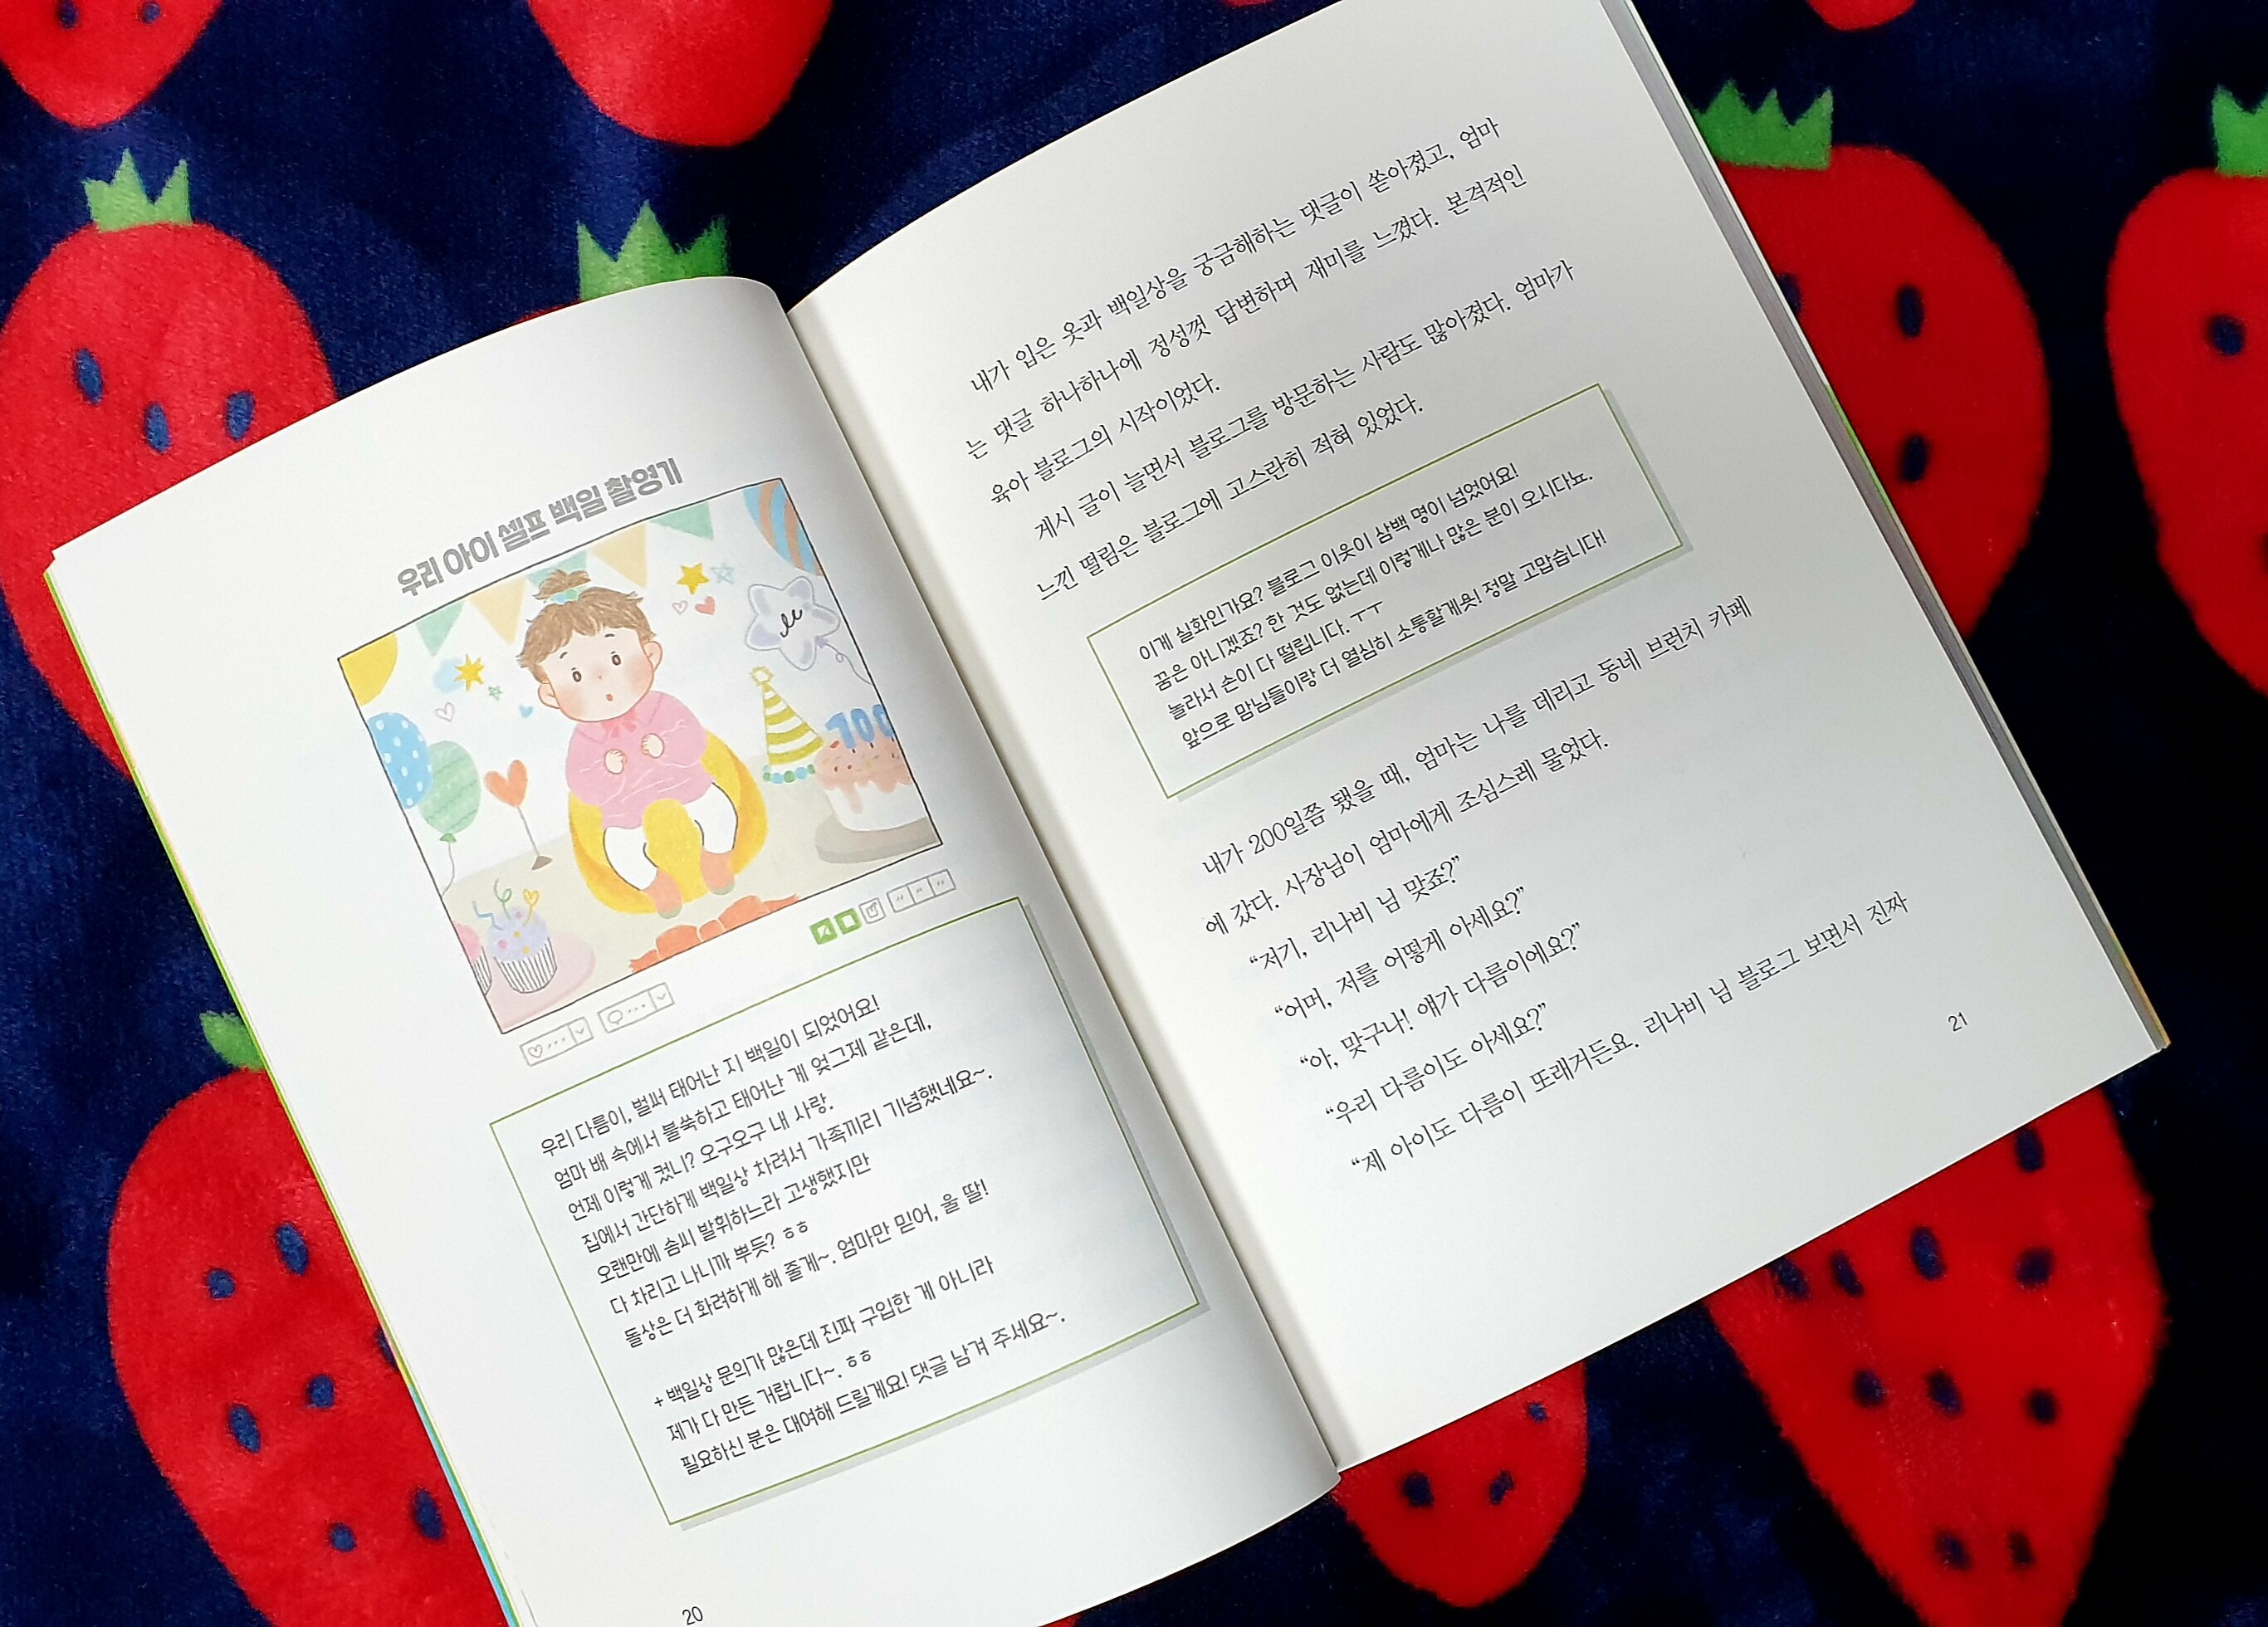 우리 아이 셀프 백일 촬영기
100
우리 다름이, 벌써 태어난 지 백일이 되었어요!
엄마 배 속에서 불쑥하고 태어난 게 엊그제 같은데,
언제 이렇게 컸니? 오구오구 내 사랑.
집에서 간단하게 백일상 차려서 가족끼리 기념했네요~.
오랜만에 솜씨 발휘하느라 고생했지만
다 차리고 나니까 뿌듯? ㅎㅎ
돌상은 더 화려하게 해 줄게~. 엄마만 믿어, 울 딸!
+ 백일상 문의가 많은데 진짜 구입한 게 아니라
제가 다 만든 거랍니다~. ㅎㅎ
필요하신 분은 대여해 드릴게요! 댓글 남겨 주세요~.
20
내가 입은 옷과 백일상을 궁금해하는 댓글이 쏟아졌고, 엄마
는 댓글 하나하나에 정성껏 답변하며 재미를 느꼈다. 본격적인
육아 블로그의 시작이었다.
게시 글이 늘면서 블로그를 방문하는 사람도 많아졌다. 엄마가
느낀 떨림은 블로그에 고스란히 적혀 있었다.
이게 실화인가요? 블로그 이웃이 삼백 명이 넘었어요!
꿈은 아니겠죠? 한 것도 없는데 이렇게나 많은 분이 오시다뇨.
놀라서 손이 다 떨립니다. ㅜㅜ
앞으로 맘님들이랑 더 열심히 소통할게욧! 정말 고맙습니다!
내가 200일쯤 됐을 때, 엄마는 나를 데리고 동네 브런치 카페
에 갔다. 사장님이 엄마에게 조심스레 물었다.
“저기, 리나비 님 맞죠?”
“어머, 저를 어떻게 아세요?”
“아, 맞구나! 얘가 다름이에요?”
“우리 다름이도 아세요?”
“제 아이도 다름이 또래거든요. 리나비 님 블로그 보면서 진짜
21